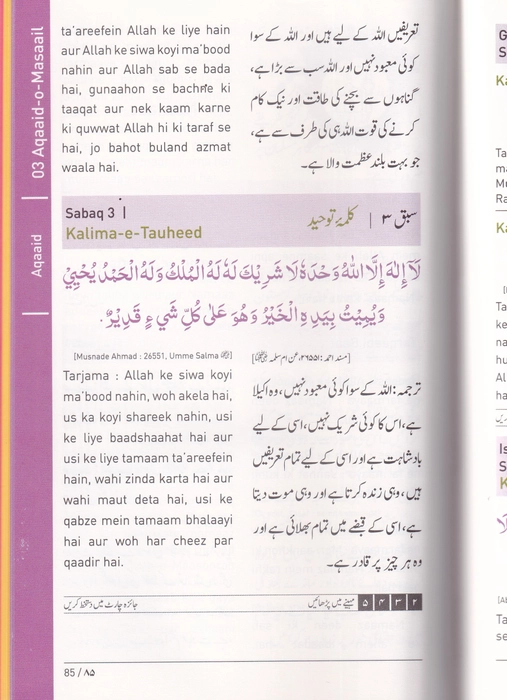 03 Aqaaid-o-Masaail
Aqaaid
ta'areefein Allah ke liye hain
aur Allah ke siwa koyi ma'bood
nahin aur Allah sab se bada
hai, gunaahon se bachne ki
taaqat aur nek kaam karne
ki quwwat Allah hi ki taraf se
hai, jo bahot buland azmat
waala hai.
تعریفیں اللہ کے لیے ہیں اور اللہ کے سوا
کوئی معبود نہیں اور اللہ سب سے بڑا ہے،
گناہوں سے بچنے کی طاقت اور نیک کام
کرنے کی قوت اللہ ہی کی طرف سے ہے،
جو بہت بلند عظمت والا ہے۔
Sabaq 3 |
Kalima-e-Tauheed
سبق ۳ | کلمۂ توحید
لَآ إِلٰهَ إِلَّا اللّٰهُ وَحْدَهٗ لَا شَرِيْكَ لَهٗ لَهُ الْمُلْكُ وَلَهُ الْحَمْدُ يُحْيِيْ
وَيُمِيْتُ بِيَدِهِ الْخَيْرُ وَهُوَ عَلٰى كُلِّ شَيْءٍ قَدِيْرٌ.
[Musnade Ahmad : 26551, Umme Salma]
[مسند احمد: ۲۶۵۵۱، عن ام سلمہ]
Tarjama : Allah ke siwa koyi
ma'bood nahin, woh akela hai,
us ka koyi shareek nahin, usi
ke liye baadshaahat hai aur
usi ke liye tamaam ta'areefein
hain, wahi zinda karta hai aur
wahi maut deta hai, usi ke
qabze mein tamaam bhalaayi
hai aur woh har cheez par
qaadir hai.
ترجمہ: اللہ کے سوا کوئی معبود نہیں، وہ اکیلا
ہے، اس کا کوئی شریک نہیں، اسی کے لیے
بادشاہت ہے اور اسی کے لیے تمام تعریفیں
ہیں، وہی زندہ کرتا ہے اور وہی موت دیتا
ہے، اسی کے قبضے میں تمام بھلائی ہے اور
وہ ہر چیز پر قادر ہے۔
۲ ۳ ۴ ۵ مہینے میں پڑھائیں
جائزہ چارٹ میں دستخط کریں
85 / ۸۵